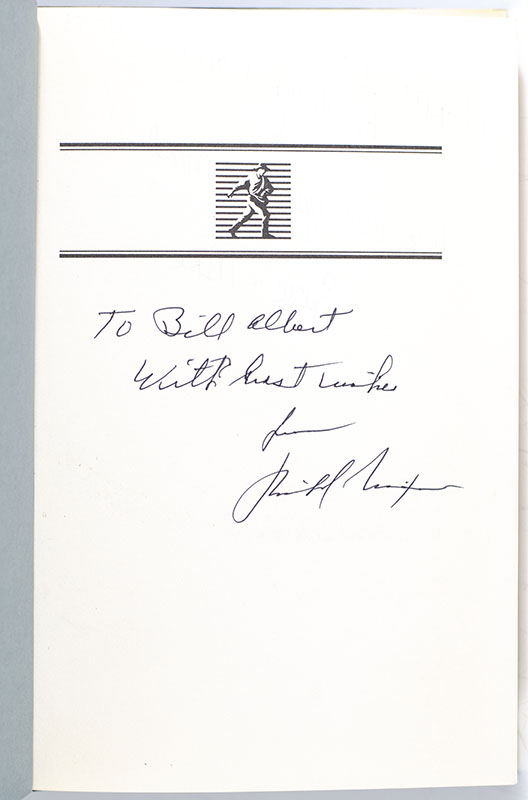 To Bill Albert
With best wishes
from
Richard Nixon